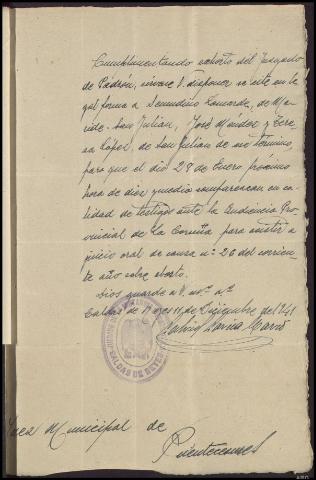 Cumplimentando exhorto del Juzgado
de Padrón, sírvase V. disponer se cite en le-
gal forma a Secundino Lamarde, de Ma-
San Julián, José Méndez y Tere-
sa López, de San Julián de ese término,
para que el día 28 de Enero próximo
hora de diez y media comparezcan en ca-
lidad de testigos ante la Audiencia Pro-
vincial de la Coruña para asistir a
juicio oral de causa nº 26 del corrien-
te año sobre aborto.
Dios guarde a V. ms. as.
Caldas de Reyes 11, de Diciembre de 1941
CALDAS DE REYES
Juez Municipal de
Puentecesures